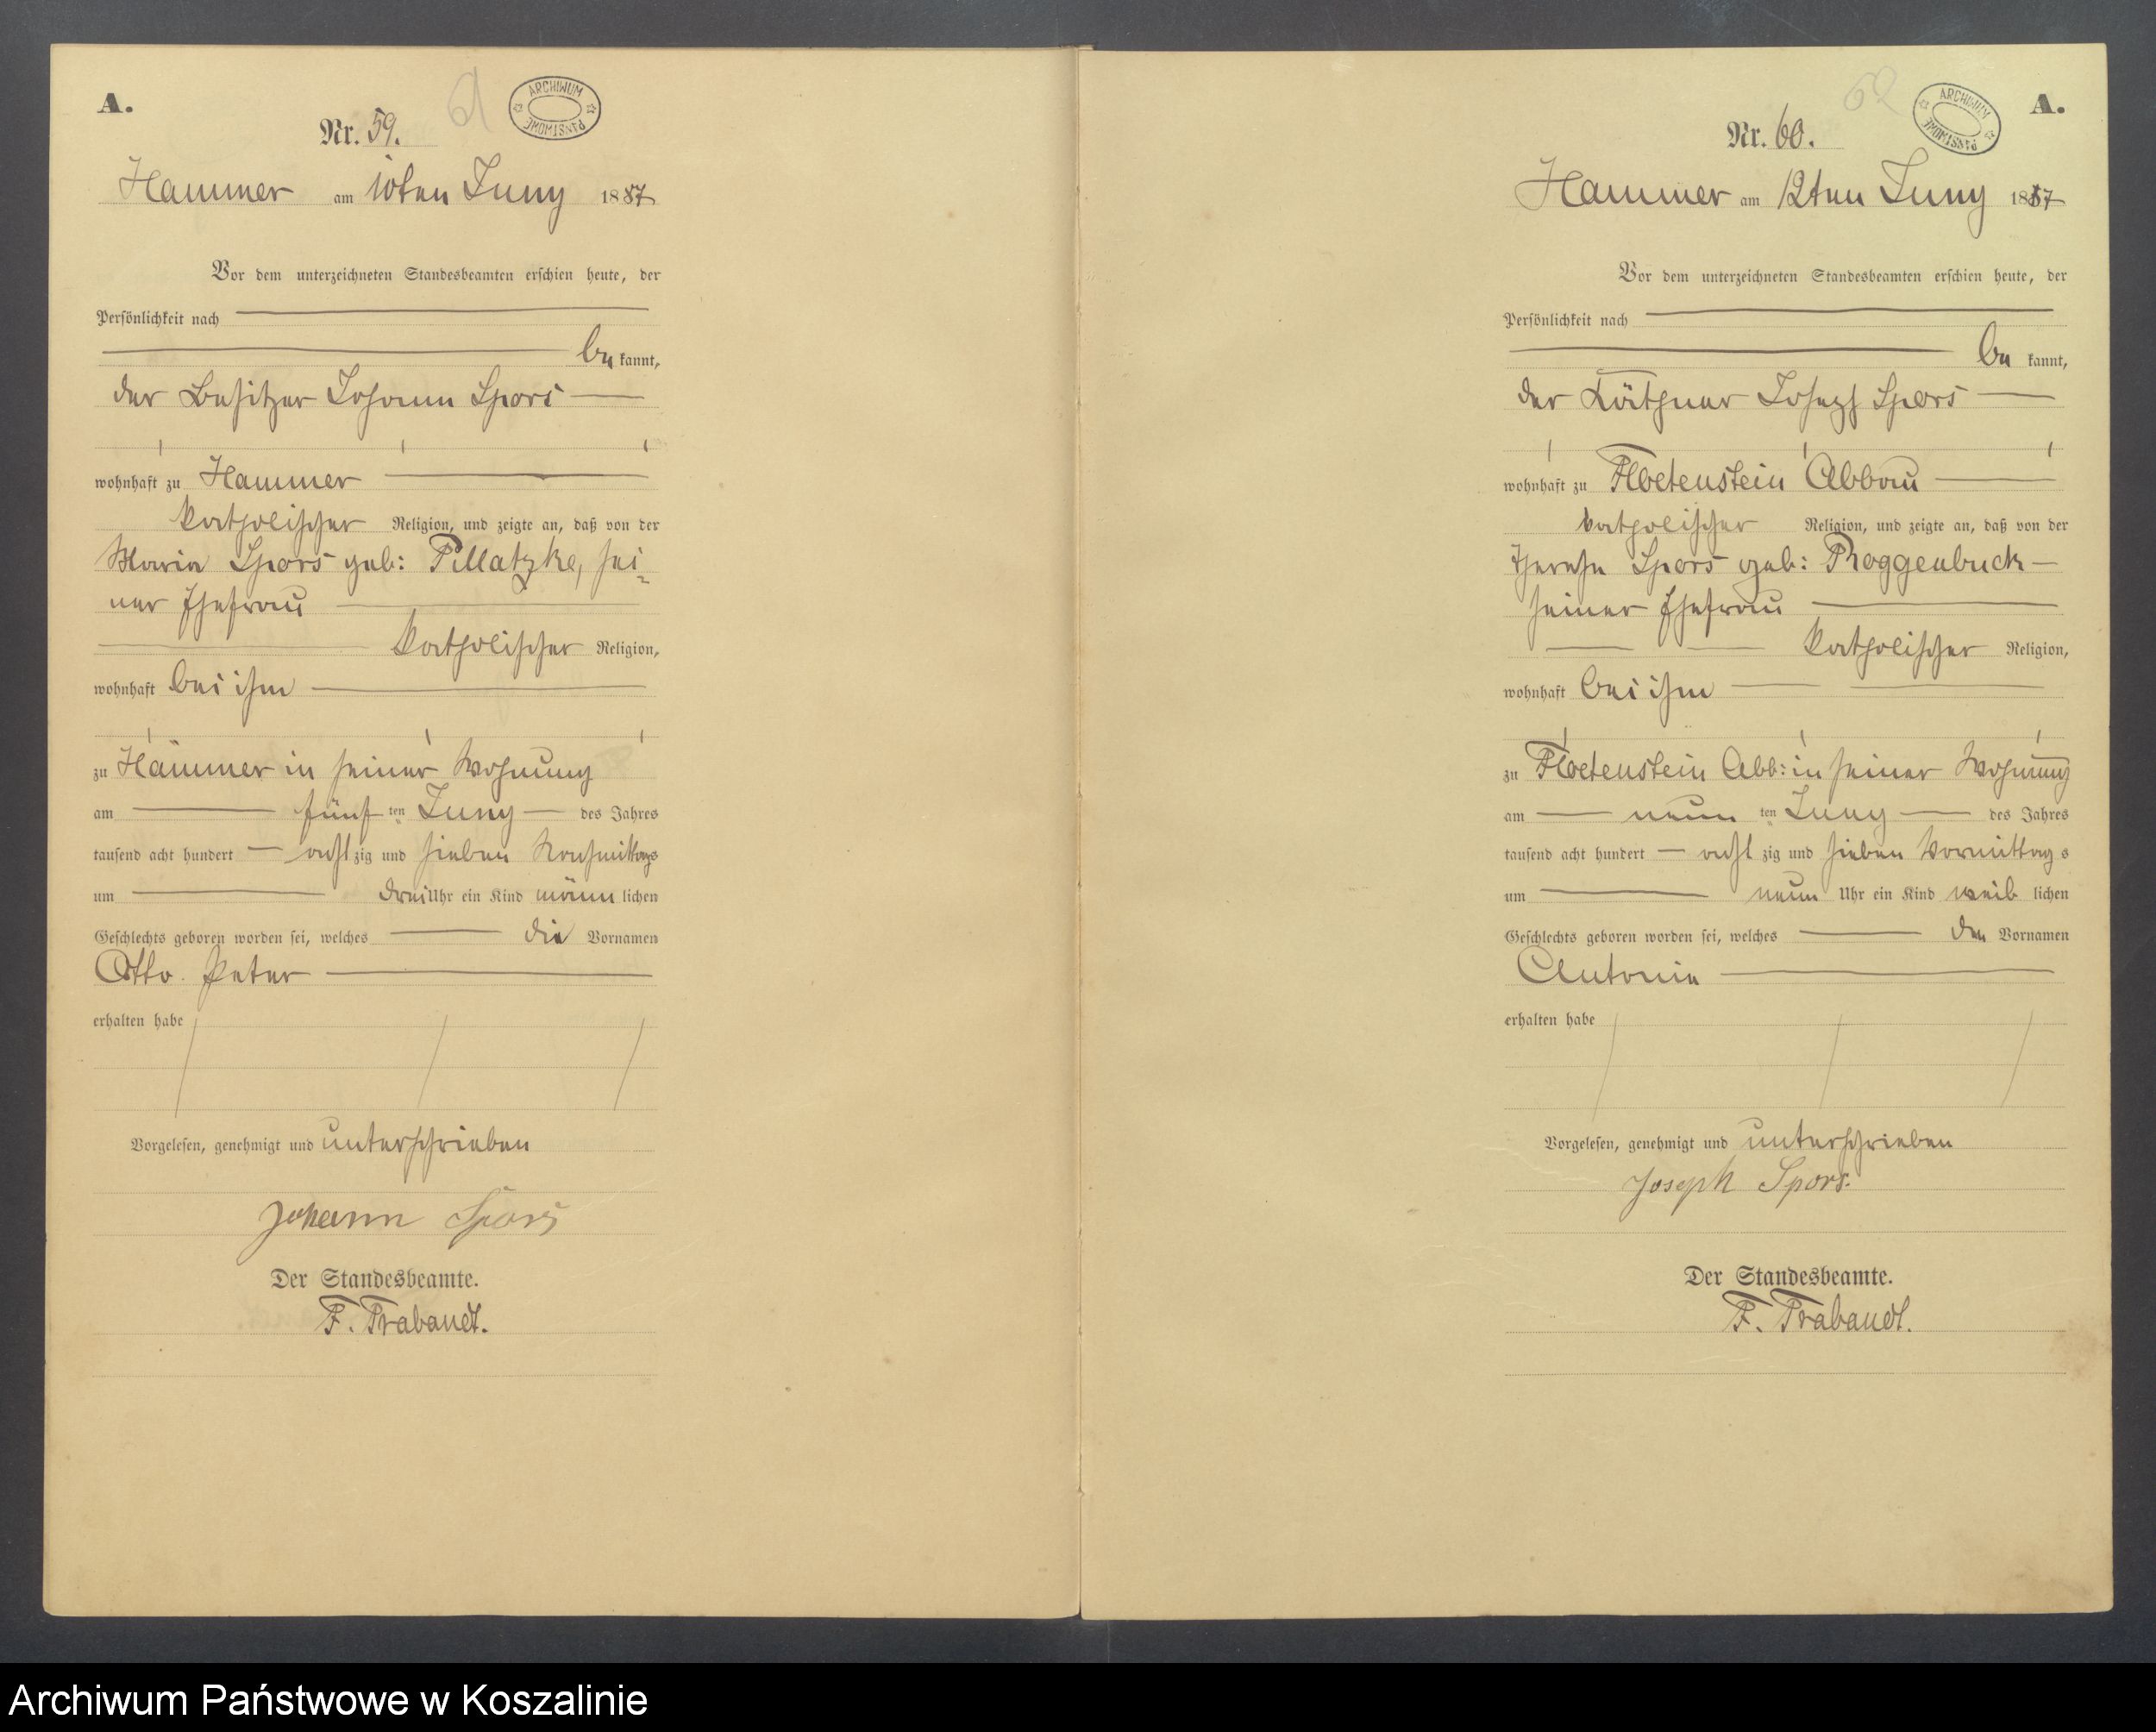 A.
Nr. 59.
61
ARCHIWUM PAŃSTWOWE
Hammer am 10ten Juny 1887
Vor dem unterzeichneten Standesbeamten erschien heute, der
Persönlichkeit nach
be kannt,
der Besitzer Johann Spors
wohnhaft zu Hammer
katholischer Religion, und zeigte an, daß von der
Maria Spors geb: Pillatzke, sei-
ner Ehefrau
katholischer Religion,
wohnhaft bei ihm
zu Hammer in seiner Wohnung
am fünf ten Juny des Jahres
tausend acht hundert acht zig und sieben Nachmittags
um drei Uhr ein Kind männ lichen
Geschlechts geboren worden sei, welches die Vornamen
Otto Peter
erhalten habe
Vorgelesen, genehmigt und unterschrieben
Johann Spors
Der Standesbeamte.
F. Trabandt.
62
ARCHIWUM PAŃSTWOWE
A.
Nr. 60.
Hammer am 12ten Juny 1887
Vor dem unterzeichneten Standesbeamten erschien heute, der
Persönlichkeit nach
be kannt,
der Käthner Joseph Spors
wohnhaft zu Floetenstein Abbau
katholischer Religion, und zeigte an, daß von der
Therese Spors geb: Roggenbuck
seiner Ehefrau
katholischer Religion,
wohnhaft bei ihm
zu Floetenstein Abb: in seiner Wohnung
am neun ten Juny des Jahres
tausend acht hundert acht zig und sieben Vormittags
um neun Uhr ein Kind weib lichen
Geschlechts geboren worden sei, welches den Vornamen
Antonie
erhalten habe
Vorgelesen, genehmigt und unterschrieben
Joseph Spors.
Der Standesbeamte.
F. Trabandt.
Archiwum Państwowe w Koszalinie